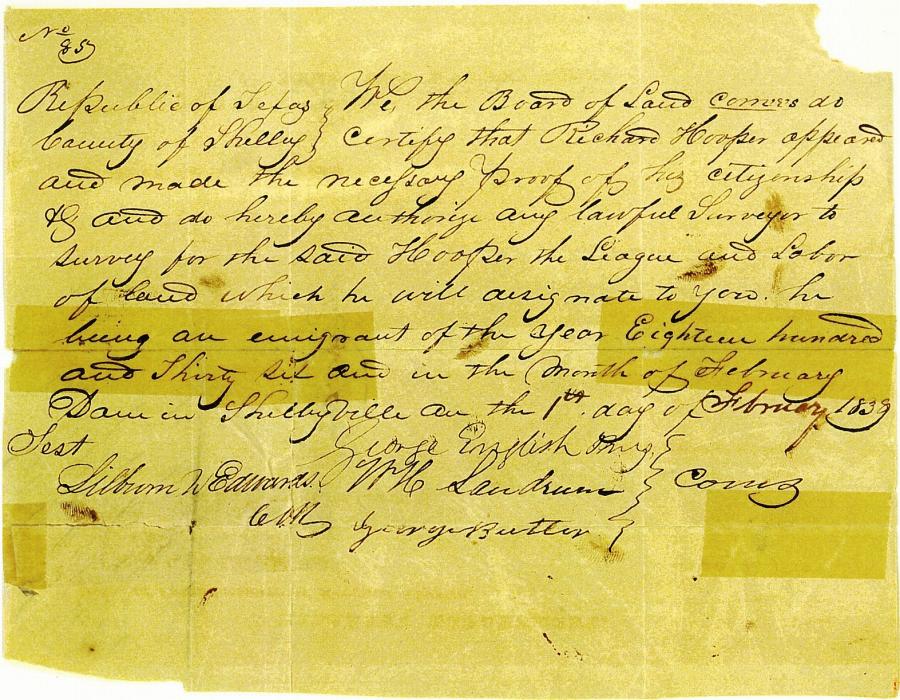 No
85
Republic of Texas } We, the Board of Land comrs do
County of Shelby } Certify that Richard Hooper appeared
and made the necessary proof of his citizenship
&c and do hereby authorize any lawful Surveyor to
survey for the said Hooper the League and Labor
of land which he will designate to you. he
being an emigrant of the year Eighteen hundred
and Thirty six and in the month of February
Dam in Shelbyville on the 1th day of February 1838
Test George English
W H Landrum } Coms
George Butler }
Edwards